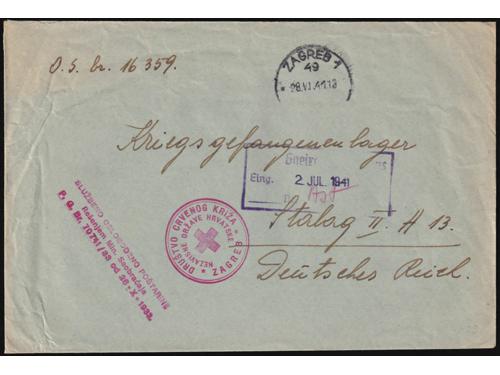 O.S. br. 16 359.
ZAGREB 1
49
* 28.VI.41.18
Kriegsgefangenenlager
Eing. 2. JUL. 1941
Stalag II A 13.
Deutsches Reich.
DRUŠTVO CRVENOG KRIŽA * ZAGREB *
NEZAVISNE DRŽAVE HRVATSKE
SLUŽBENO OSLOBODJENO POŠTARINE
Rešenjem Min. Saobraćaja
P. G. Br. 70741/33 od 26-X-1933.